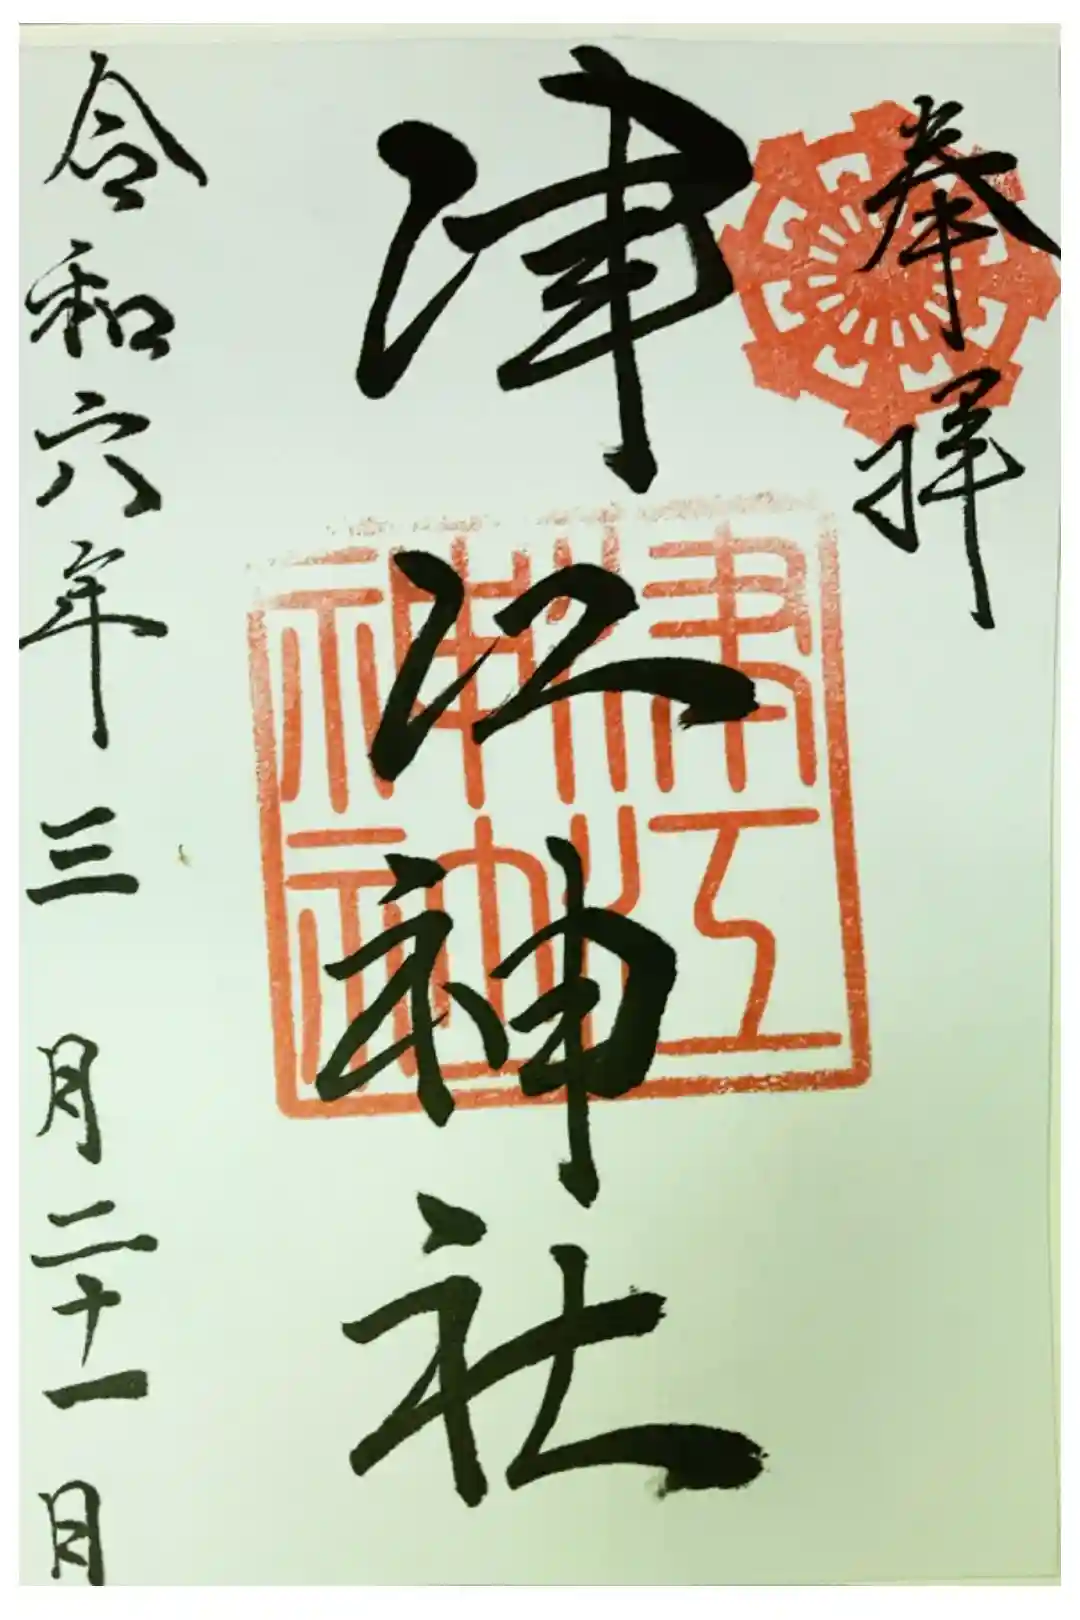 奉拝
津江神社
津江
神社
令和六年三月二十一日